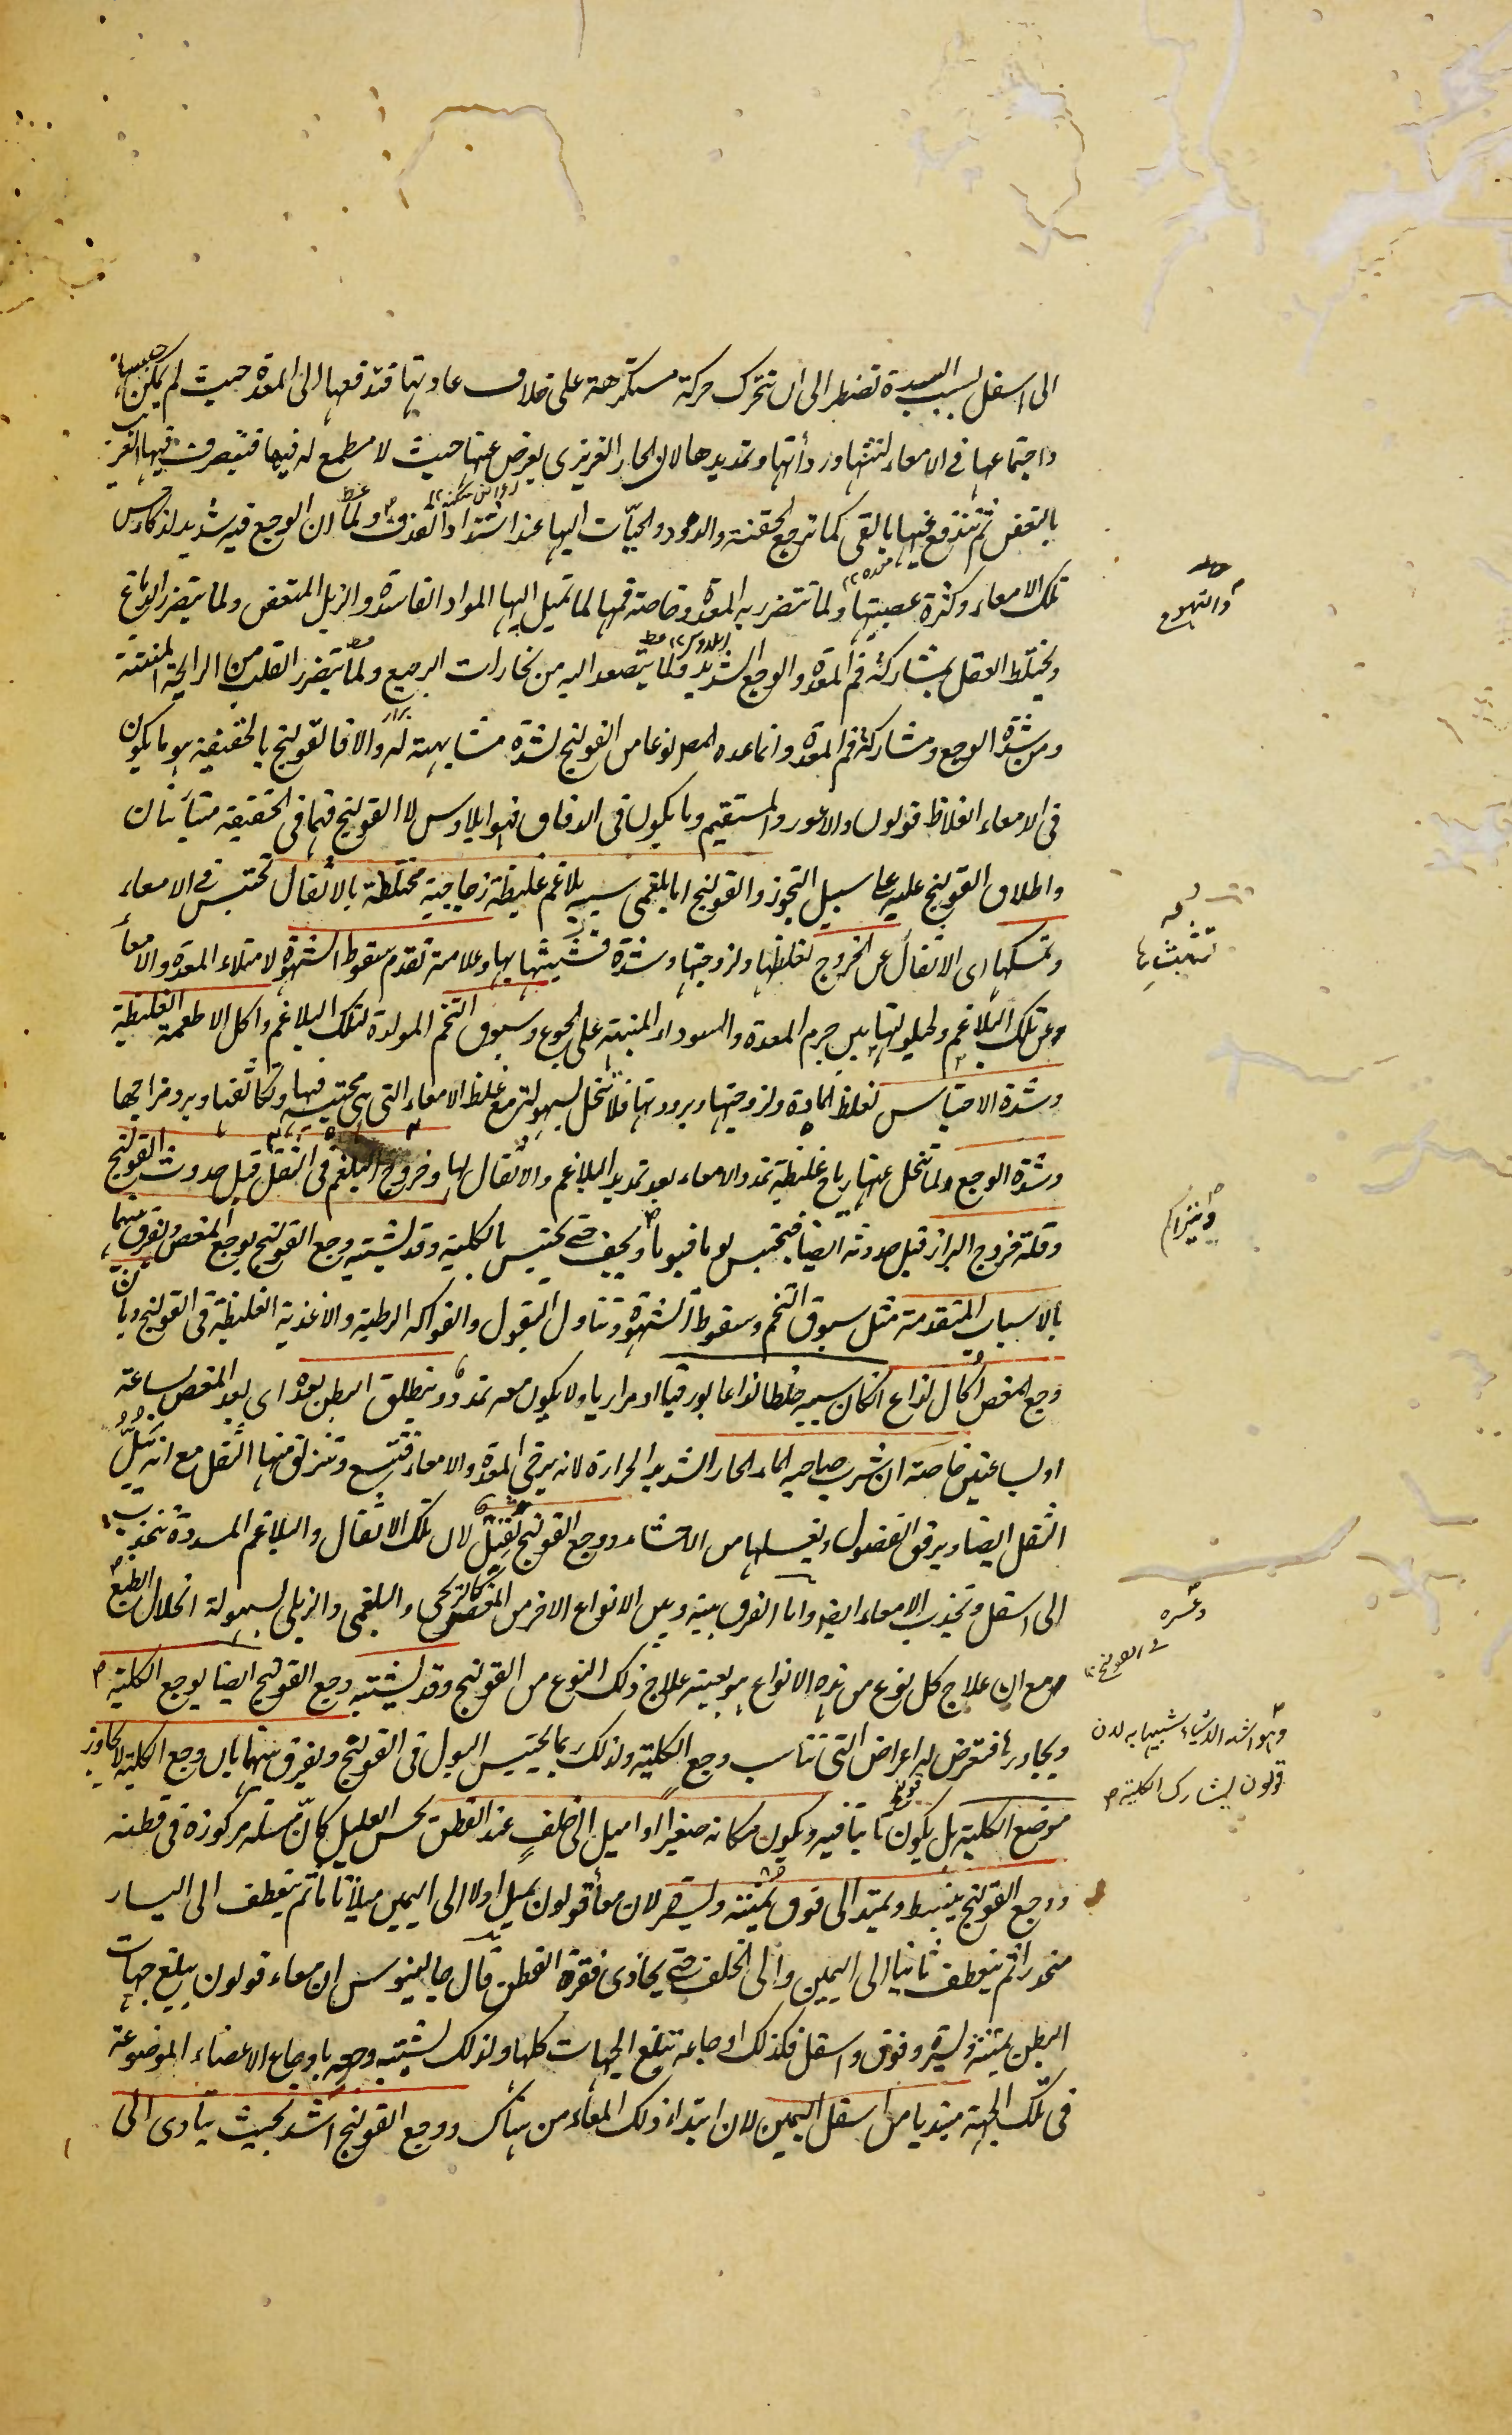 الى اسفل بسبب السدة تضطر الى ان تتحرك حركة مستكرهة على خلاف عادتها فتدفعها الى المعدة حيث لم يمكن حبسها
واجتماعها فى الامعاء لنتنها ورداءتها وتمديدها لان الحار الغريزى يعرض عنها حيث لا مطمع له فيها فيتصرف فيها الغريب
بالتعفن ثم تندفع عنها بالقى كما ترجع الحقنة والدود والحيّات اليها عند اشتداد القذف ولما ان الوجع فيه شديد لذكاء حس
تلك الامعاء وكثرة عصبيتها ولما تتضرر به المعدة وخاصة فمها لما تميل اليها المواد الفاسدة والزبل المتعفن ولما يتضرر الدماغ
والتهوع
ويختلط العقل بمشاركة فم المعدة والوجع الشديد ولما يتصعد اليه من بخارات الرجيع ولما يتضرر القلب من الرائحة المنتنة
ومن شدة الوجع ومشاركة فم المعدة وانما عده المص نوعا من القولنج لشدة مشابهته له والا فالقولنج بالحقيقة هو ما يكون
فى الامعاء الغلاظ قولون والاعور والمستقيم وما يكون فى الدقاق فهو ايلاوس لا القولنج فهما فى الحقيقة متباينان
واطلاق القولنج عليه على سبيل التجوز والقولنج اما بلغمى سببه بلاغم غليظة زجاجية مختلطة بالاثفال تحتبس فى الامعاء
وتمسكها اى الاثفال عن الخروج لغلظها ولزوجتها وشدة تشبثها بها وعلامته تقدم سقوط الشهوة لامتلاء المعدة والامعاء
تشبثها
عن تلك البلاغم ولحيلولتها بين جرم المعدة والسوداء المنبهة على الجوع وسبوق التخم المولدة لتلك البلاغم واكل الاطعمة الغليظة
وشدة الاحتباس لغلظ المادة ولزوجتها وبرودتها فلا تنحل بسهولة مع غلظ الامعاء التى هى محتبسة فيها وتكاثفها وبرد مزاجها
وشدة الوجع ولما تنحل عنها رياح غليظة تمدد الامعاء بعد تمديد البلاغم والاثفال لها وخروج البلغم فى الثفل قبل حدوث القولنج
وقلة خروج البراز قبل حدوثه ايضا فيحتبس يوما فيوما ويجف حتى يحتبس بالكلية وقد يشتبه وجع القولنج بوجع المغص ويفرق بينهما
بالاسباب المتقدمة مثل سبوق التخم وسقوط الشهوة وتناول البقول والفواكه الرطبة والاغذية الغليظة فى القولنج وبان
وجع المغص اكال لذاع انكان سببه خلطا لذاعا بورقيا او مراريا ولا يكون معه تمدد وينطلق البطن بعده اى بعد المغص بساعة
او ساعتين خاصة ان شرب صاحبه الماء الحار الشديد الحرارة لانه يرخى المعدة والامعاء فتتسع وتنزلق منها الثفل مع انه يبلّ
الثفل ايضا ويرقق الفضول ويغسلها من الاحشاء ووجع القولنج ثقيل لان تلك الاثفال والبلاغم المسددة تنجذب
الى اسفل وتجذب الامعاء ايضا واما الفرق بينه وبين الانواع الاخر من المغص كالريحى والبلغمى والزبلى لسهولة انحلال الطبع
وعسره
فى القولنج
مع ان علاج كل نوع من هذه الانواع هو بعينه علاج ذلك النوع من القولنج وقد يشتبه وجع القولنج ايضا بوجع الكلية
وهو اشد الاشياء شبها به لان
قولون يشارك الكلية
ويجاورها فتعرض له اعراض التى تناسب وجع الكلية ولذلك ربما يحتبس البول فى القولنج ويفرق بينهما بان وجع الكلية لا يجاوز
موضع الكلية بل يكون ثابتا فيه ويكون مكانه صغيرا او اميل الى خلف عند القطن يحس العليل كانّ مسلة مركوزة فى قطنه
ووجع القولنج ينبسط ويمتد الى فوق يمنة ويسرة لان معاء قولون يميل اولا الى اليمين ميلا تاما ثم ينعطف الى اليسار
منحدرا ثم ينعطف ثانيا الى اليمين والى الخلف حتى يحاذى فقرة القطن قال جالينوس ان معاء قولون يبلغ جهات
البطن يمنة ويسرة وفوق واسفل فكذلك اوجاعه تبلغ الجهات كلها ولذلك يشتبه وجعه باوجاع الاعضاء الموضوعة
فى تلك الجهة مبتديا من اسفل اليمين لان ابتداء ذلك المعاء من هناك ووجع القولنج اشد بحيث يتادى الى